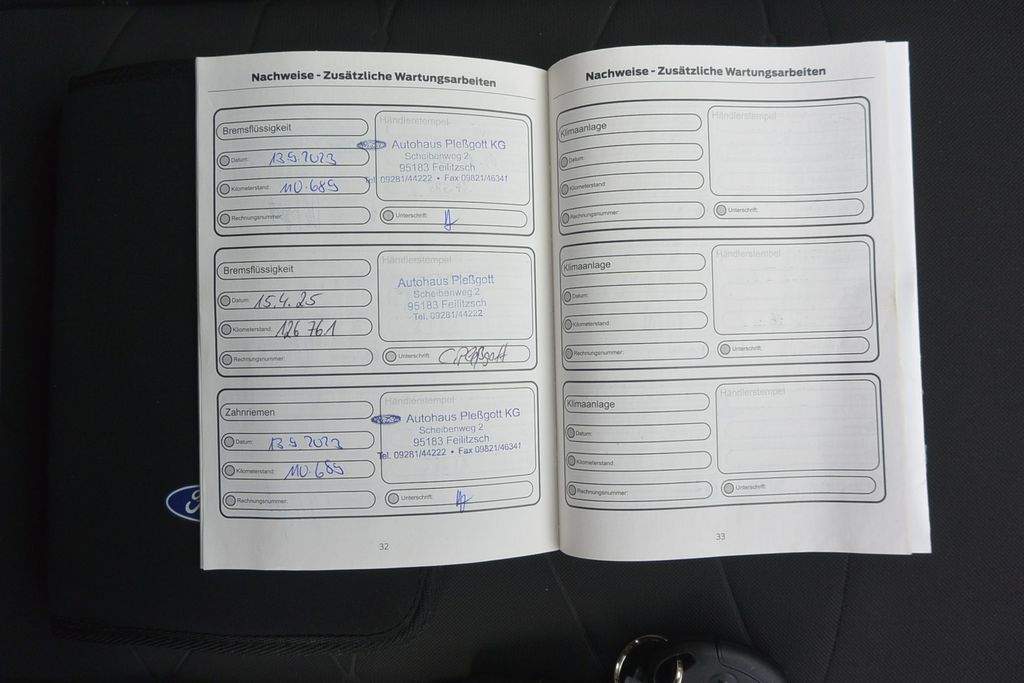 Nachweise - Zusätzliche Wartungsarbeiten
Bremsflüssigkeit
Datum: 13.9.2023
Kilometerstand: 110.689
Rechnungsnummer:
Händlerstempel
Autohaus Pleßgott KG
Scheibenweg 2
95183 Feilitzsch
Tel. 09281/44222 • Fax 09821/46341
Unterschrift:
Bremsflüssigkeit
Datum: 15.4.25
Kilometerstand: 126 761
Rechnungsnummer:
Händlerstempel
Autohaus Pleßgott
Scheibenweg 2
95183 Feilitzsch
Tel. 09281/44222
Unterschrift: C. Pleßgott
Zahnriemen
Datum: 13.9.2023
Kilometerstand: 110.689
Rechnungsnummer:
Händlerstempel
Autohaus Pleßgott KG
Scheibenweg 2
95183 Feilitzsch
Tel. 09281/44222 • Fax 09821/46341
Unterschrift:
32
Nachweise - Zusätzliche Wartungsarbeiten
Klimaanlage
Datum:
Kilometerstand:
Rechnungsnummer:
Händlerstempel
Unterschrift:
Klimaanlage
Datum:
Kilometerstand:
Rechnungsnummer:
Händlerstempel
Unterschrift:
Klimaanlage
Datum:
Kilometerstand:
Rechnungsnummer:
Händlerstempel
Unterschrift:
33